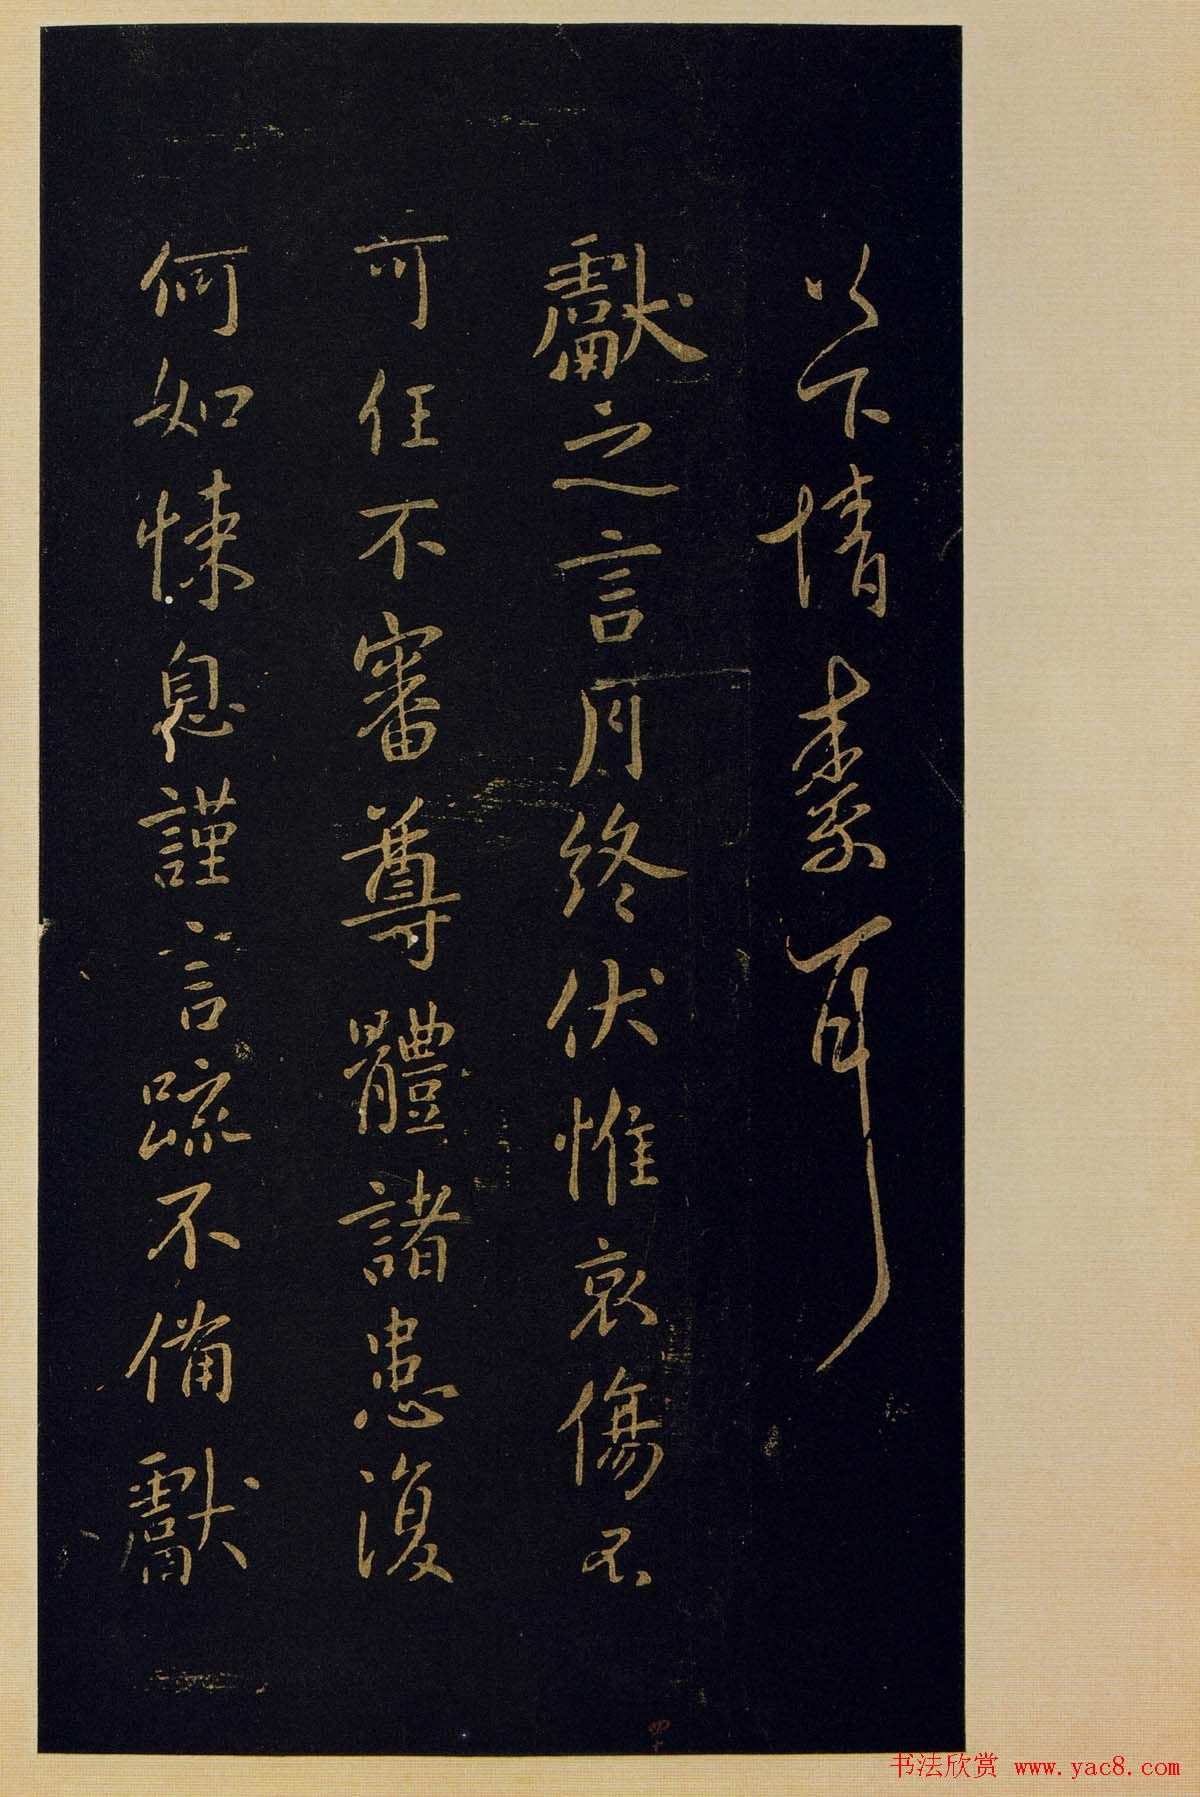 以下情耳
獻之言月終伏惟哀傷不
可任不審尊體諸患復
何如悚息謹言疏不備獻
书法欣赏 www.yac8.com